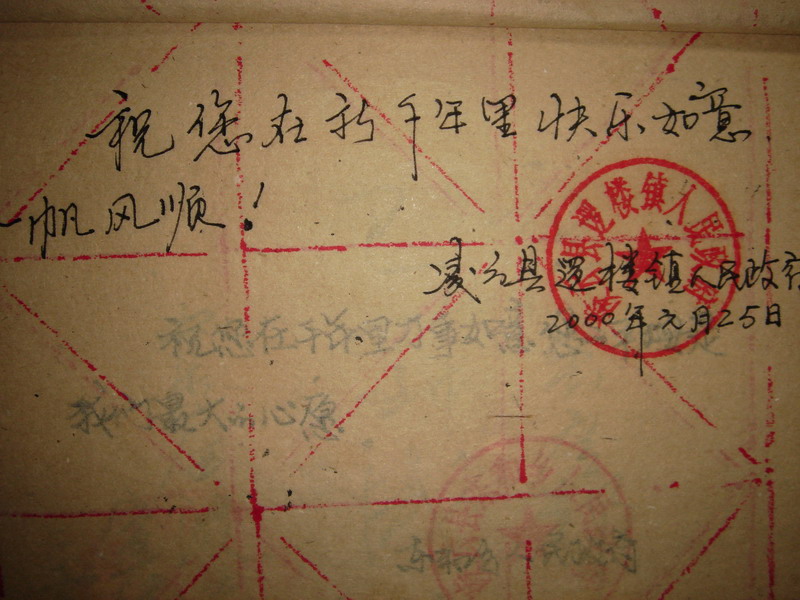 祝您在新千年里快乐如意
一帆风顺!
凌云县逻楼镇人民政府
凌云县逻楼镇人民政府
2000年元月25日
祝您在千年里万事如意 您
我们最大的心愿
人民政府